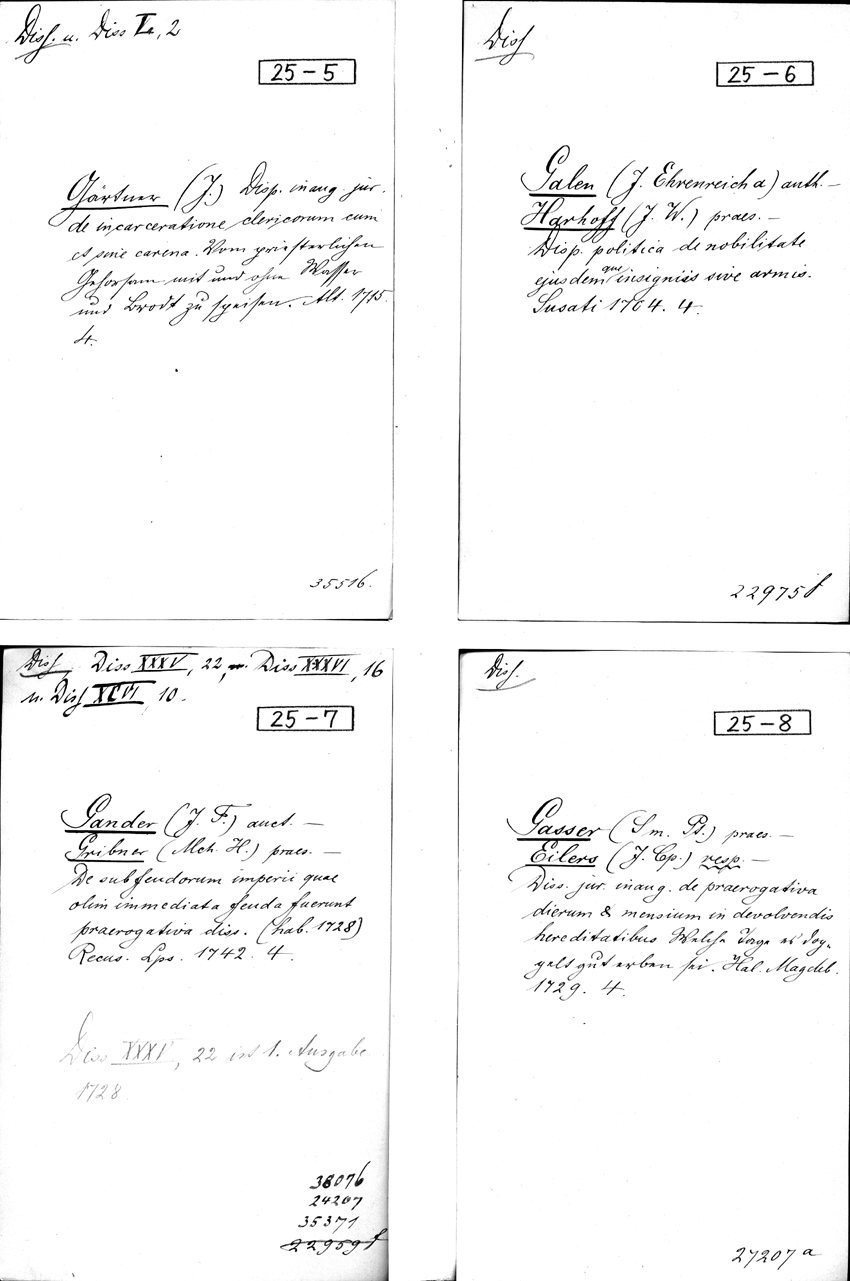 Diss. u. Diss L, 2
25-5
Gärtner (J.) Disp. inaug. jur.
de incarceratione clericorum cum
et sine carena. Vom priesterlichen
Gehorsam mit und ohne Wasser
und Brodt zu speisen. Alt. 1715.
4.
35516.
Diss
25-6
Galen (J. Ehrenreich a) auth. —
Harhoff (J. W.) praes. —
Disp. politica de nobilitate
ejusdemque insigniis sive armis.
Susati 1704. 4.
22975f
Diss, Diss XXXV, 22, u. Diss XXXVI, 16
u. Diss XCVI, 10.
25-7
Gander (J. F.) auct. —
Gribner (Mch. H.) praes. —
De subfeudorum imperii quae
olim immediata feuda fuerunt
praerogativa diss. (hab. 1728)
Recus. Lps. 1742. 4.
Diss XXXV, 22 ist 1. Ausgabe
1728
38076
24207
35371
22959f
Diss.
25-8
Gasser (Sm. Pt.) praes. —
Eilers (J. Cp.) resp. —
Diss. jur. inaug. de praerogativa
dierum & mensium in devolvendis
hereditatibus Welche Tage es dop-
pelt gut erben sei. Hal. Magdeb.
1729. 4.
27207a